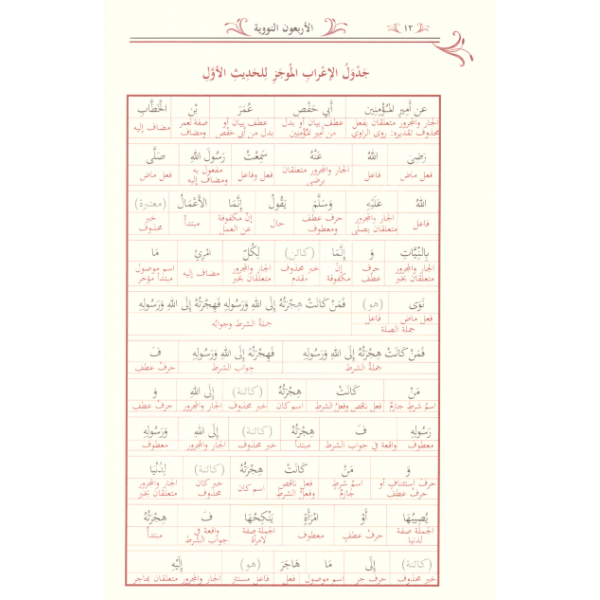 ١٢ الأربعون النووية
جَدْوَلُ الإعْرَابِ المُوجَزِ لِلحَدِيثِ الأوَّل
عن أَمِيرِ المُؤْمِنِين أَبِي حَفْصٍ عُمَرَ بْنِ الخَطَّابِ
الجار والمجرور متعلقان بفعل محذوف تقديره: روى الراوي عطف بيان أو بدل من أمير المؤمنين عطف بيان أو بدل من أبي حفص صفة لعمر ومضاف مضاف إليه
رَضِيَ اللهُ عَنْهُ سَمِعْتُ رَسُولَ اللهِ صَلَّى
فعل ماض فاعل الجار والمجرور متعلقان برضي فعل وفاعل مفعول به ومضاف إليه فعل ماض
اللهُ عَلَيْهِ وَسَلَّمَ يَقُولُ إِنَّمَا الأَعْمَالُ (معتبرة)
فاعل الجار والمجرور متعلقان بصلى حرف عطف ومعطوف حال إنّ مكفوفة عن العمل مبتدأ خبر محذوف
بِالنِّيَّاتِ وَ إِنَّمَا (كائن) لِكُلِّ امْرِئٍ مَا
الجار والمجرور متعلقان بخبر حرف عطف إنّ مكفوفة خبر محذوف مقدم الجار والمجرور متعلقان بخبر مضاف إليه اسم موصول مبتدأ مؤخر
نَوَى (هو) فَمَنْ كَانَتْ هِجْرَتُهُ إِلَى اللهِ وَرَسُولِهِ فَهِجْرَتُهُ إِلَى اللهِ وَرَسُولِهِ
فعل ماض فاعل جملة الشرط وجوابه
جملة الصلة
فَمَنْ كَانَتْ هِجْرَتُهُ إِلَى اللهِ وَرَسُولِهِ فَهِجْرَتُهُ إِلَى اللهِ وَرَسُولِهِ فَ
جملةُ الشرط جواب الشرط حرف عطف
مَنْ كَانَتْ هِجْرَتُهُ (كائنة) إِلَى اللهِ وَ
اسمُ شرطٍ جازمٌ فعل ناقص وفعلُ الشرط اسم كان خبر محذوف الجار والمجرور حرفُ عطف
رَسُولِهِ فَ هِجْرَتُهُ (كائنة) إِلَى اللهِ وَرَسُولِهِ
معطوف واقعة في جواب الشرط مبتدأ خبر محذوف الجار والمجرور معطوف
وَ مَنْ كَانَتْ هِجْرَتُهُ (كائنة) لِدُنْيَا
حرفُ إستئنافٍ أو حرفُ عطف اسمُ شرطٍ جازمٌ فعل ناقص وفعلُ الشرط اسم كان خبر كان محذوف الجار والمجرور متعلقان بخبر
يُصِيبُهَا أَوْ امْرَأَةٍ يَنْكِحُهَا فَ هِجْرَتُهُ
الجملة صفة لدنيا حرفُ عطفٍ معطوف الجملة صفة لامرأة واقعة في جواب الشرط مبتدأ
(كائنة) إِلَى مَا هَاجَرَ (هو) إِلَيْهِ
خبر محذوف حرف جر اسم موصول فعل فاعل مستتر الجار والمجرور متعلقان بهاجر